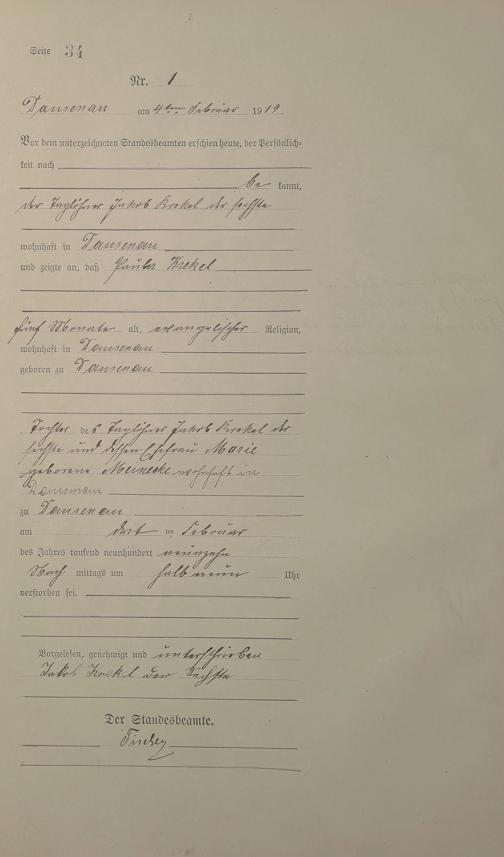 Seite 34
Nr. 1
Dausenau am 4ten Februar 1919.
Vor dem unterzeichneten Standesbeamten erschien heute, der Persönlich-
keit nach
be kannt,
der Taglöhner Jakob Krekel der sechste
wohnhaft in Dausenau
und zeigte an, daß Paula Krekel
fünf Monate alt, evangelischer Religion,
wohnhaft in Dausenau
geboren zu Dausenau
Tochter des Taglöhner Jakob Krekel der
sechste und dessen Ehefrau Marie
geborene Meinecke wohnhaft in
Dausenau
zu Dausenau
am ten Februar
des Jahres tausend neunhundert neunzehn
Nach mittags um halb neun Uhr
verstorben sei.
Vorgelesen, genehmigt und unterschrieben
Jakob Krekel der Sechste
Der Standesbeamte.